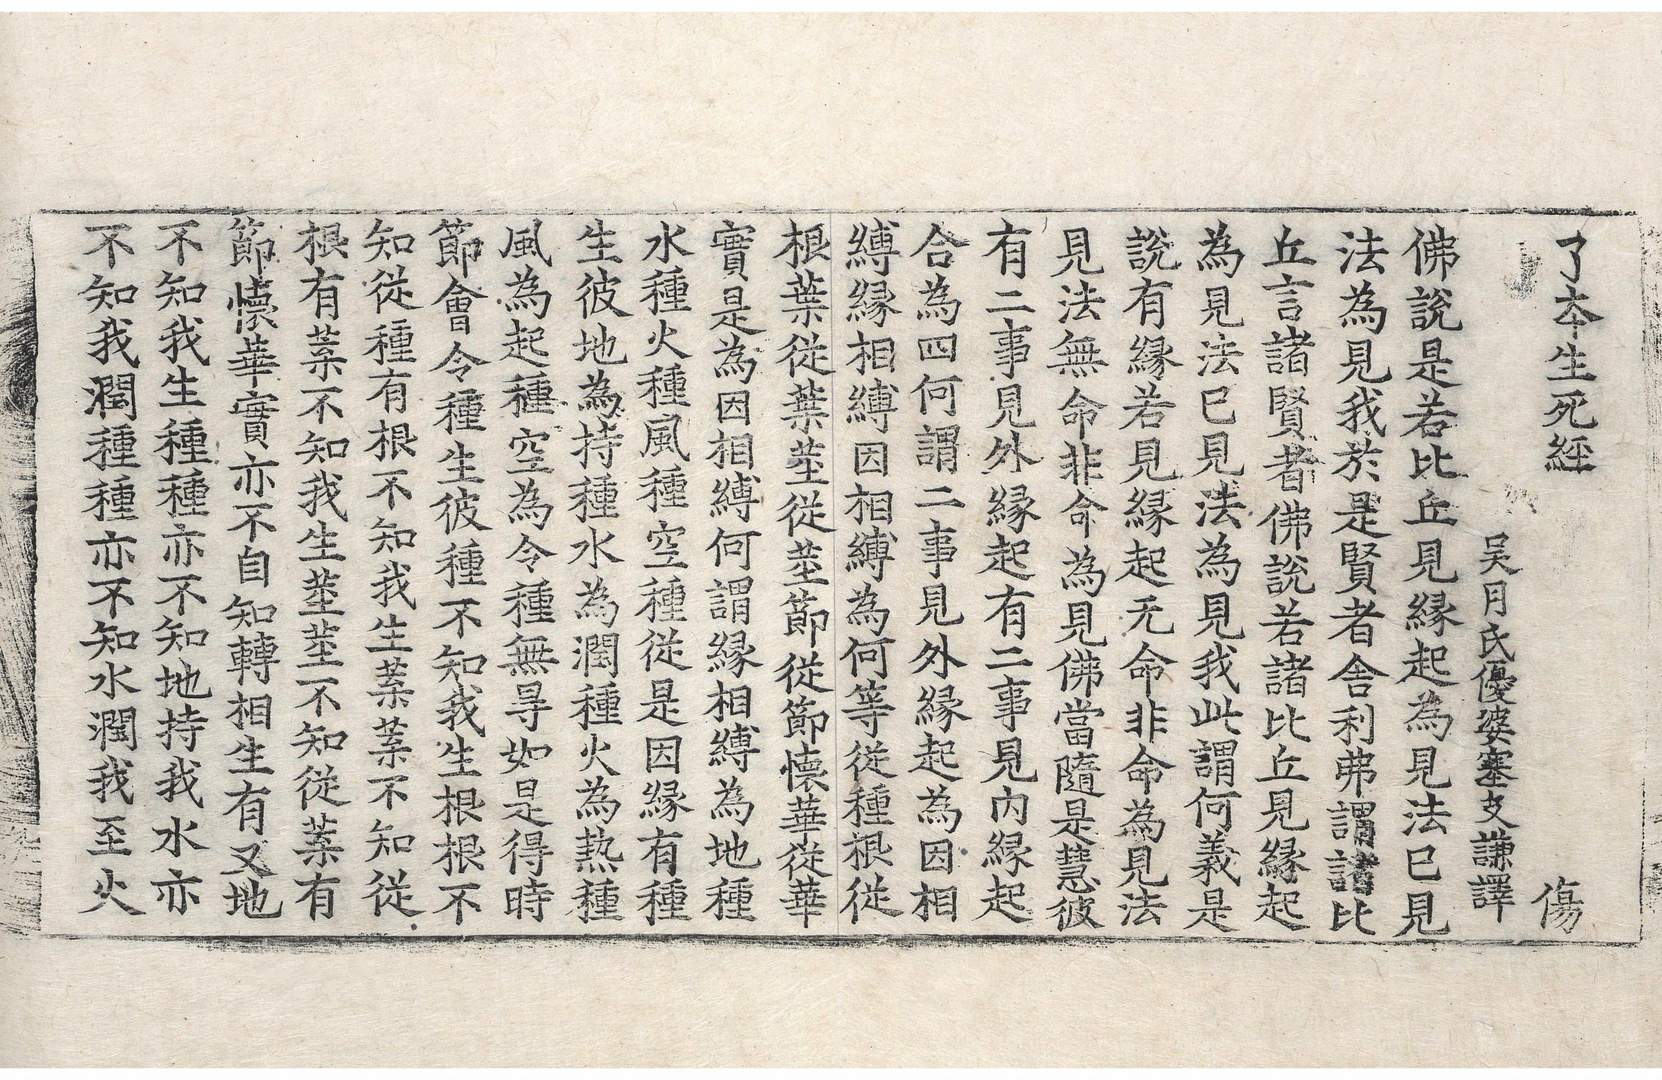 了夲生死經 傷
吳月氏優婆塞支謙譯
佛說是若比丘見緣起為見法已見
法為見我於是賢者舍利弗謂諸比
丘言諸賢者佛說若諸比丘見緣起
為見法已見法為見我此謂何義是
說有緣若見緣起无命非命為見法
見法無命非命為見佛當隨是慧彼
有二事見外緣起有二事見內緣起
合為四何謂二事見外緣起為因相
縛緣相縛因相縛為何等從種根從
根葉從葉莖從莖節從節懷華從華
實是為因相縛何謂緣相縛為地種
水種火種風種空種從是因緣有種
生彼地為持種水為潤種火為熱種
風為起種空為令種無㝵如是得時
節會令種生彼種不知我生根根不
知從種有根不知我生葉葉不知從
根有葉不知我生莖莖不知從葉有
節懷華實亦不自知轉相生有又地
不知我生種種亦不知地持我水亦
不知我潤種種亦不知水潤我至火